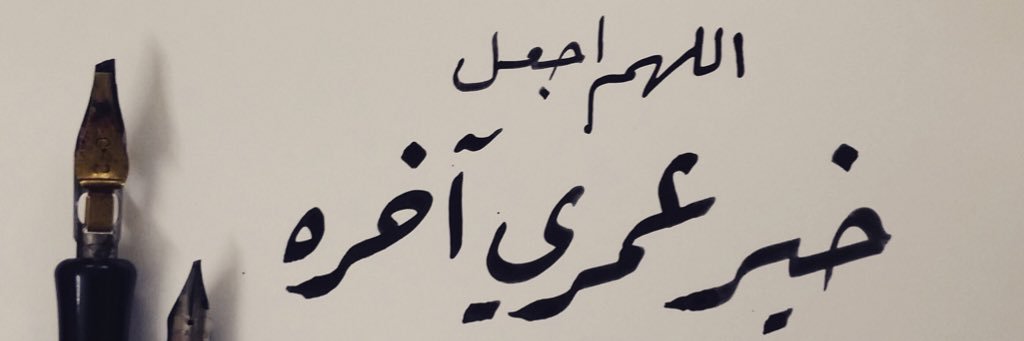 اللهم اجعل
خير عمري آخره